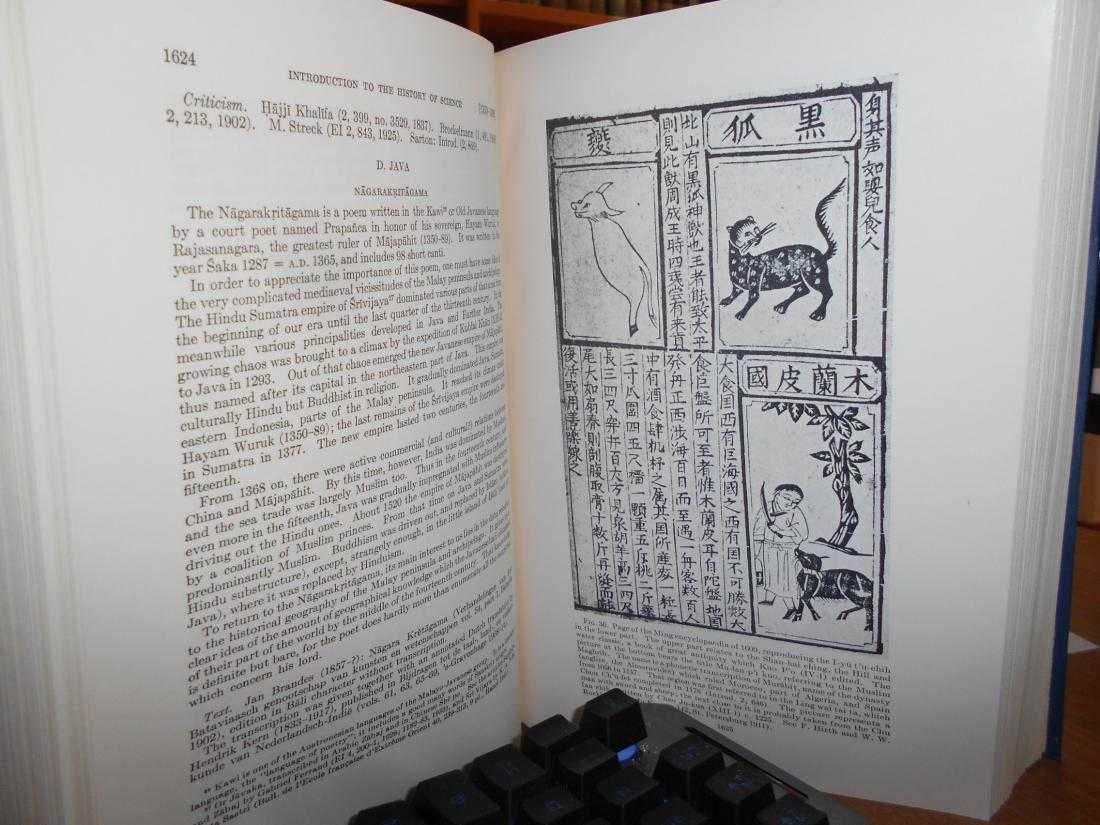 1624
INTRODUCTION TO THE HISTORY OF SCIENCE
Criticism. Ḥājjī Khalīfa (2, 399, no. 3529, 1837). Brockelmann
2, 213, 1902). M. Streck (EI 2, 843, 1925). Sarton: Introd. (2, 869).
D. JAVA
NĀGARAKṚITĀGAMA
The Nāgarakṛitāgama is a poem written in the Kawi or Old Javanese language
by a court poet named Prapañca in honor of his sovereign, Hayam Wuruk,
Rajasanagara, the greatest ruler of Mājapāhit (1350-89). It was written in the
year Śaka 1287 = A.D. 1365, and includes 98 short canti.
In order to appreciate the importance of this poem, one must have some idea of
the very complicated mediaeval vicissitudes of the Malay peninsula and archipelago.
The Hindu Sumatra empire of Śrīvijaya dominated various parts of that area from
the beginning of our era until the last quarter of the thirteenth century. In the
meanwhile various principalities developed in Java and Further India. The
growing chaos was brought to a climax by the expedition of Kublai Khān
to Java in 1293. Out of that chaos emerged the new Javanese empire of Mājapāhit,
thus named after its capital in the northeastern part of Java. This empire was
culturally Hindu but Buddhist in religion. It gradually dominated Java, Sumatra,
eastern Indonesia, parts of the Malay peninsula. It reached its climax under
Hayam Wuruk (1350-89); the last remains of the Śrīvijaya empire were destroyed
in Sumatra in 1377. The new empire lasted two centuries, the fourteenth and
fifteenth.
From 1368 on, there were active commercial (and cultural) relations between
China and Mājapāhit. By this time, however, India was dominated by Muslims
and the sea trade was largely Muslim too. Thus in the fourteenth century, and
even more in the fifteenth, Java was gradually impregnated with Muslim
driving out the Hindu ones. About 1520 the empire of Mājapāhit was
by a coalition of Muslim princes. From that time on Java and Sumatra
predominantly Muslim. Buddhism was driven out, and replaced by Islām
Hindu substructure), except, strangely enough, in the little island of Bali
Java), where it was replaced by Hinduism.
To return to the Nāgarakṛitāgama, its main interest to us lies in the data
to the historical geography of the Malay peninsula and archipelago. It gives
clear idea of the amount of geographical knowledge which the Javanese
of their part of the world by the middle of the fourteenth century. That
is definite but bare, for the poet does hardly more than enumerate all the
which concern his lord.
Text. Jan Brandes (1857-?): Nāgara Krĕtāgama (Verhandelingen
Bataviaasch genootschap van kunsten en wetenschappen vol.
1902), edition in Bāli character without transcription.
The transcription was given together with an annotated Dutch translation by
Hendrik Kern (1833-1917), published in Bijdragen tot de taal-, land-, en
kunde van Nederlandsch-Indië (vols. 61, 63, 65-69, 's-Gravenhage
Kawi is one of the Austronesian languages of the Malayo-Javanese group.
language, the "language of poetry", it includes a good many words of
Or Jāvaka, transcribed in Arabic
and Zābaj by Gabriel Ferrand (EI 4,
Sastri (Bull. de l'Ecole française d'Extrême Orient 40, 239-313,
身其声如嬰兒食人
黒狐
北山有黒狐神獸也王者能致太平
則見此獸周成王時四夷尝有来貢
木蘭皮國
大食国西有巨海國之西有国不可勝数大
食巨盤所可至者惟木蘭皮耳自陀盤地國
發舟正西涉海百日而至遇一舟容数百人
中有酒食肆机杼之属其国所産麥一粒長
三寸瓜圍四五尺榴一顆重五斤桃二斤
長三四尺穿井百丈方見泉胡羊高三四尺
尾大如扇春則剖腹取膏十数斤再縫而
復活
FIG. 36. Page of the Ming encyclopaedia of 1609, reproducing the I-yü t'u-chih
in the lower part. The upper part relates to the Shan-hai ching, the Hill and
water classic, a book of great antiquity which Kuo P'o (IV-1) edited. The
1625